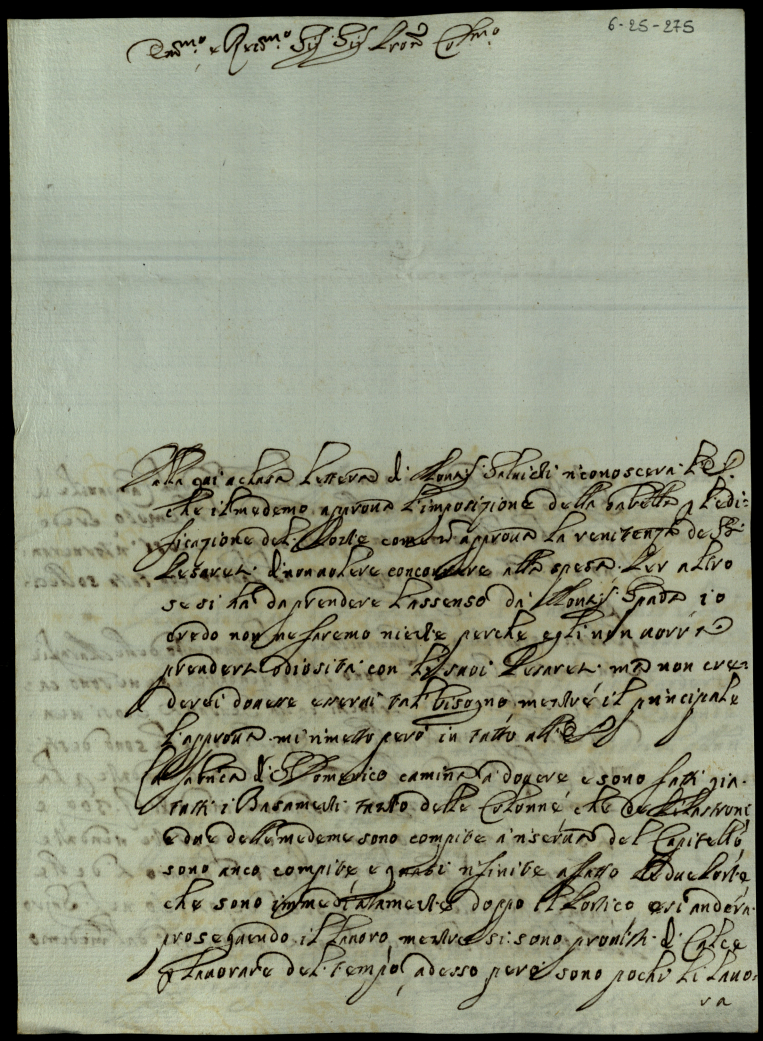 6-25-275
Em.mo e Re.mo Sig.r Sig.r Pron Col.mo
Dalla qui aclusa lettera di Mons.r riconoscerà
che il medemo approva l'imposizione della gabella p. l'edi:
ficazione del Monte come approva la renitenza de SS.
Pesaresi di non volere concorrere alla spesa. Per altro
se si ha da prendere l'assenso da Mons.r Spada io
credo non ne faremo niente perche egli non vorrà
prendersi odiosità con li suoi Pesaresi. ma non cre:
derei dovere esservi tal bisogno mentre il principale
l'approva. mi rimetto però in tutto all'
La fabrica di S. Domenico camina a dovere e sono fatti già
tutti i Basamenti tanto delle Colonne che de Pilastroni
e due delle medeme sono compite a riserva del Capitello,
sono anco compite e quasi rifinite affatto le due Porte
che sono immediatamente doppo il Portico e si anderà
proseguendo il lavoro, mentre si sono provisti di Calce
p. lavorare del tempo, adesso però sono pochi li lavo:
ra